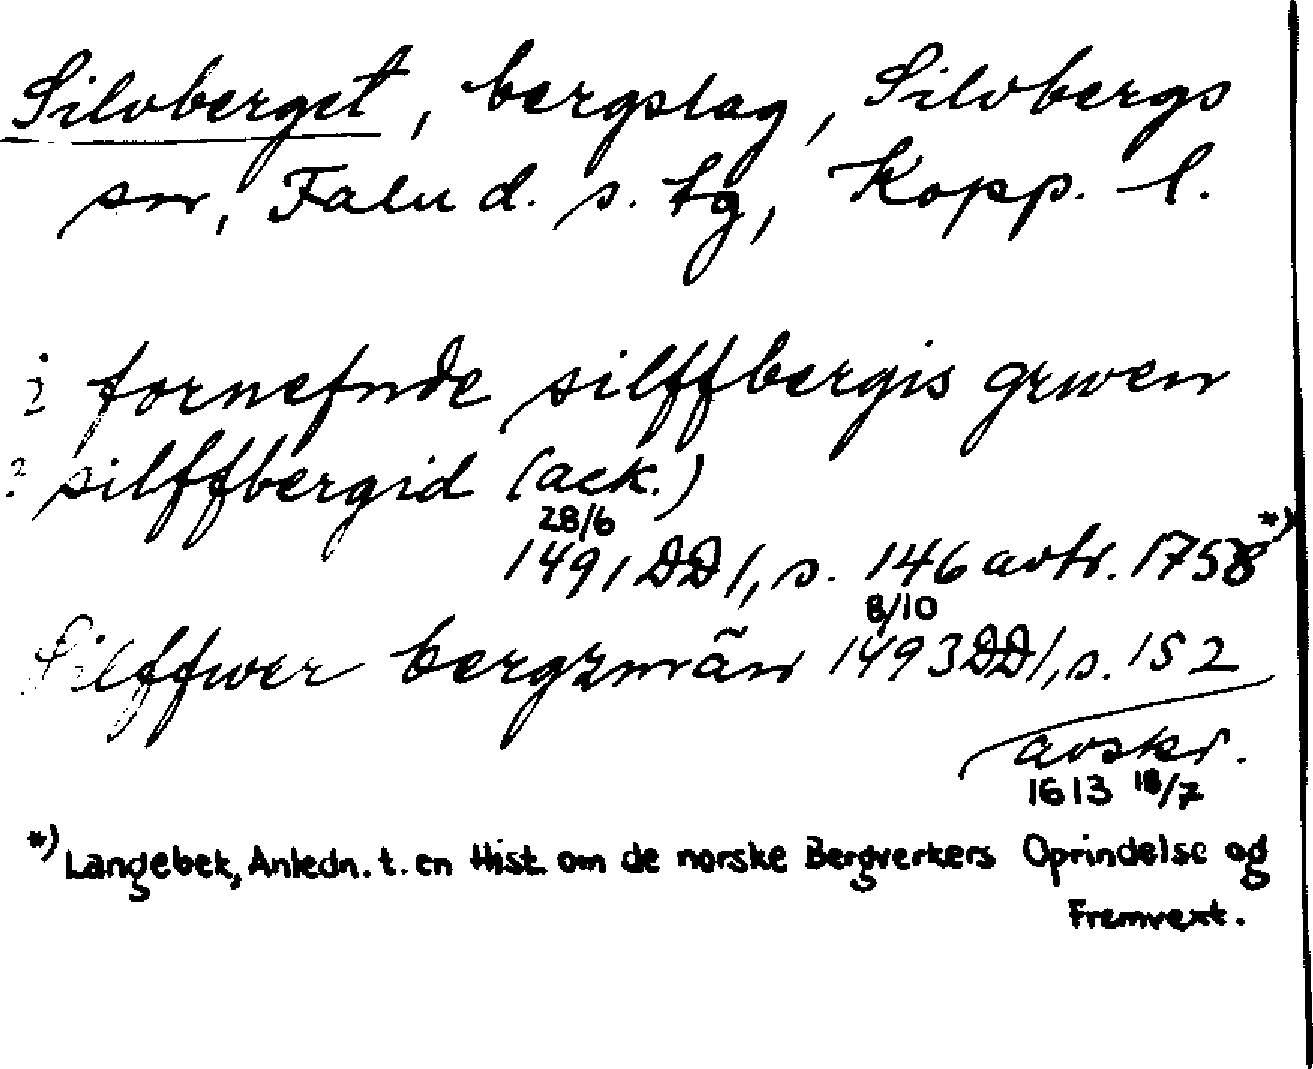 Silvberget, bergslag, Silvbergs
sn, Falu d. s. tg, Kopp. l.
i fornefnde silffbergis grwen
? silffbergid (ack.)
28/6
1491 DD 1, s. 146 avtr. 1758 *)
8/10
Silffwer bergzmän 1493 DD 1, s. 152
avskr.
1613 18/7
*) Langebek, Anledn. t. en Hist. om de norske Bergverkers Oprindelse og
Fremvext.